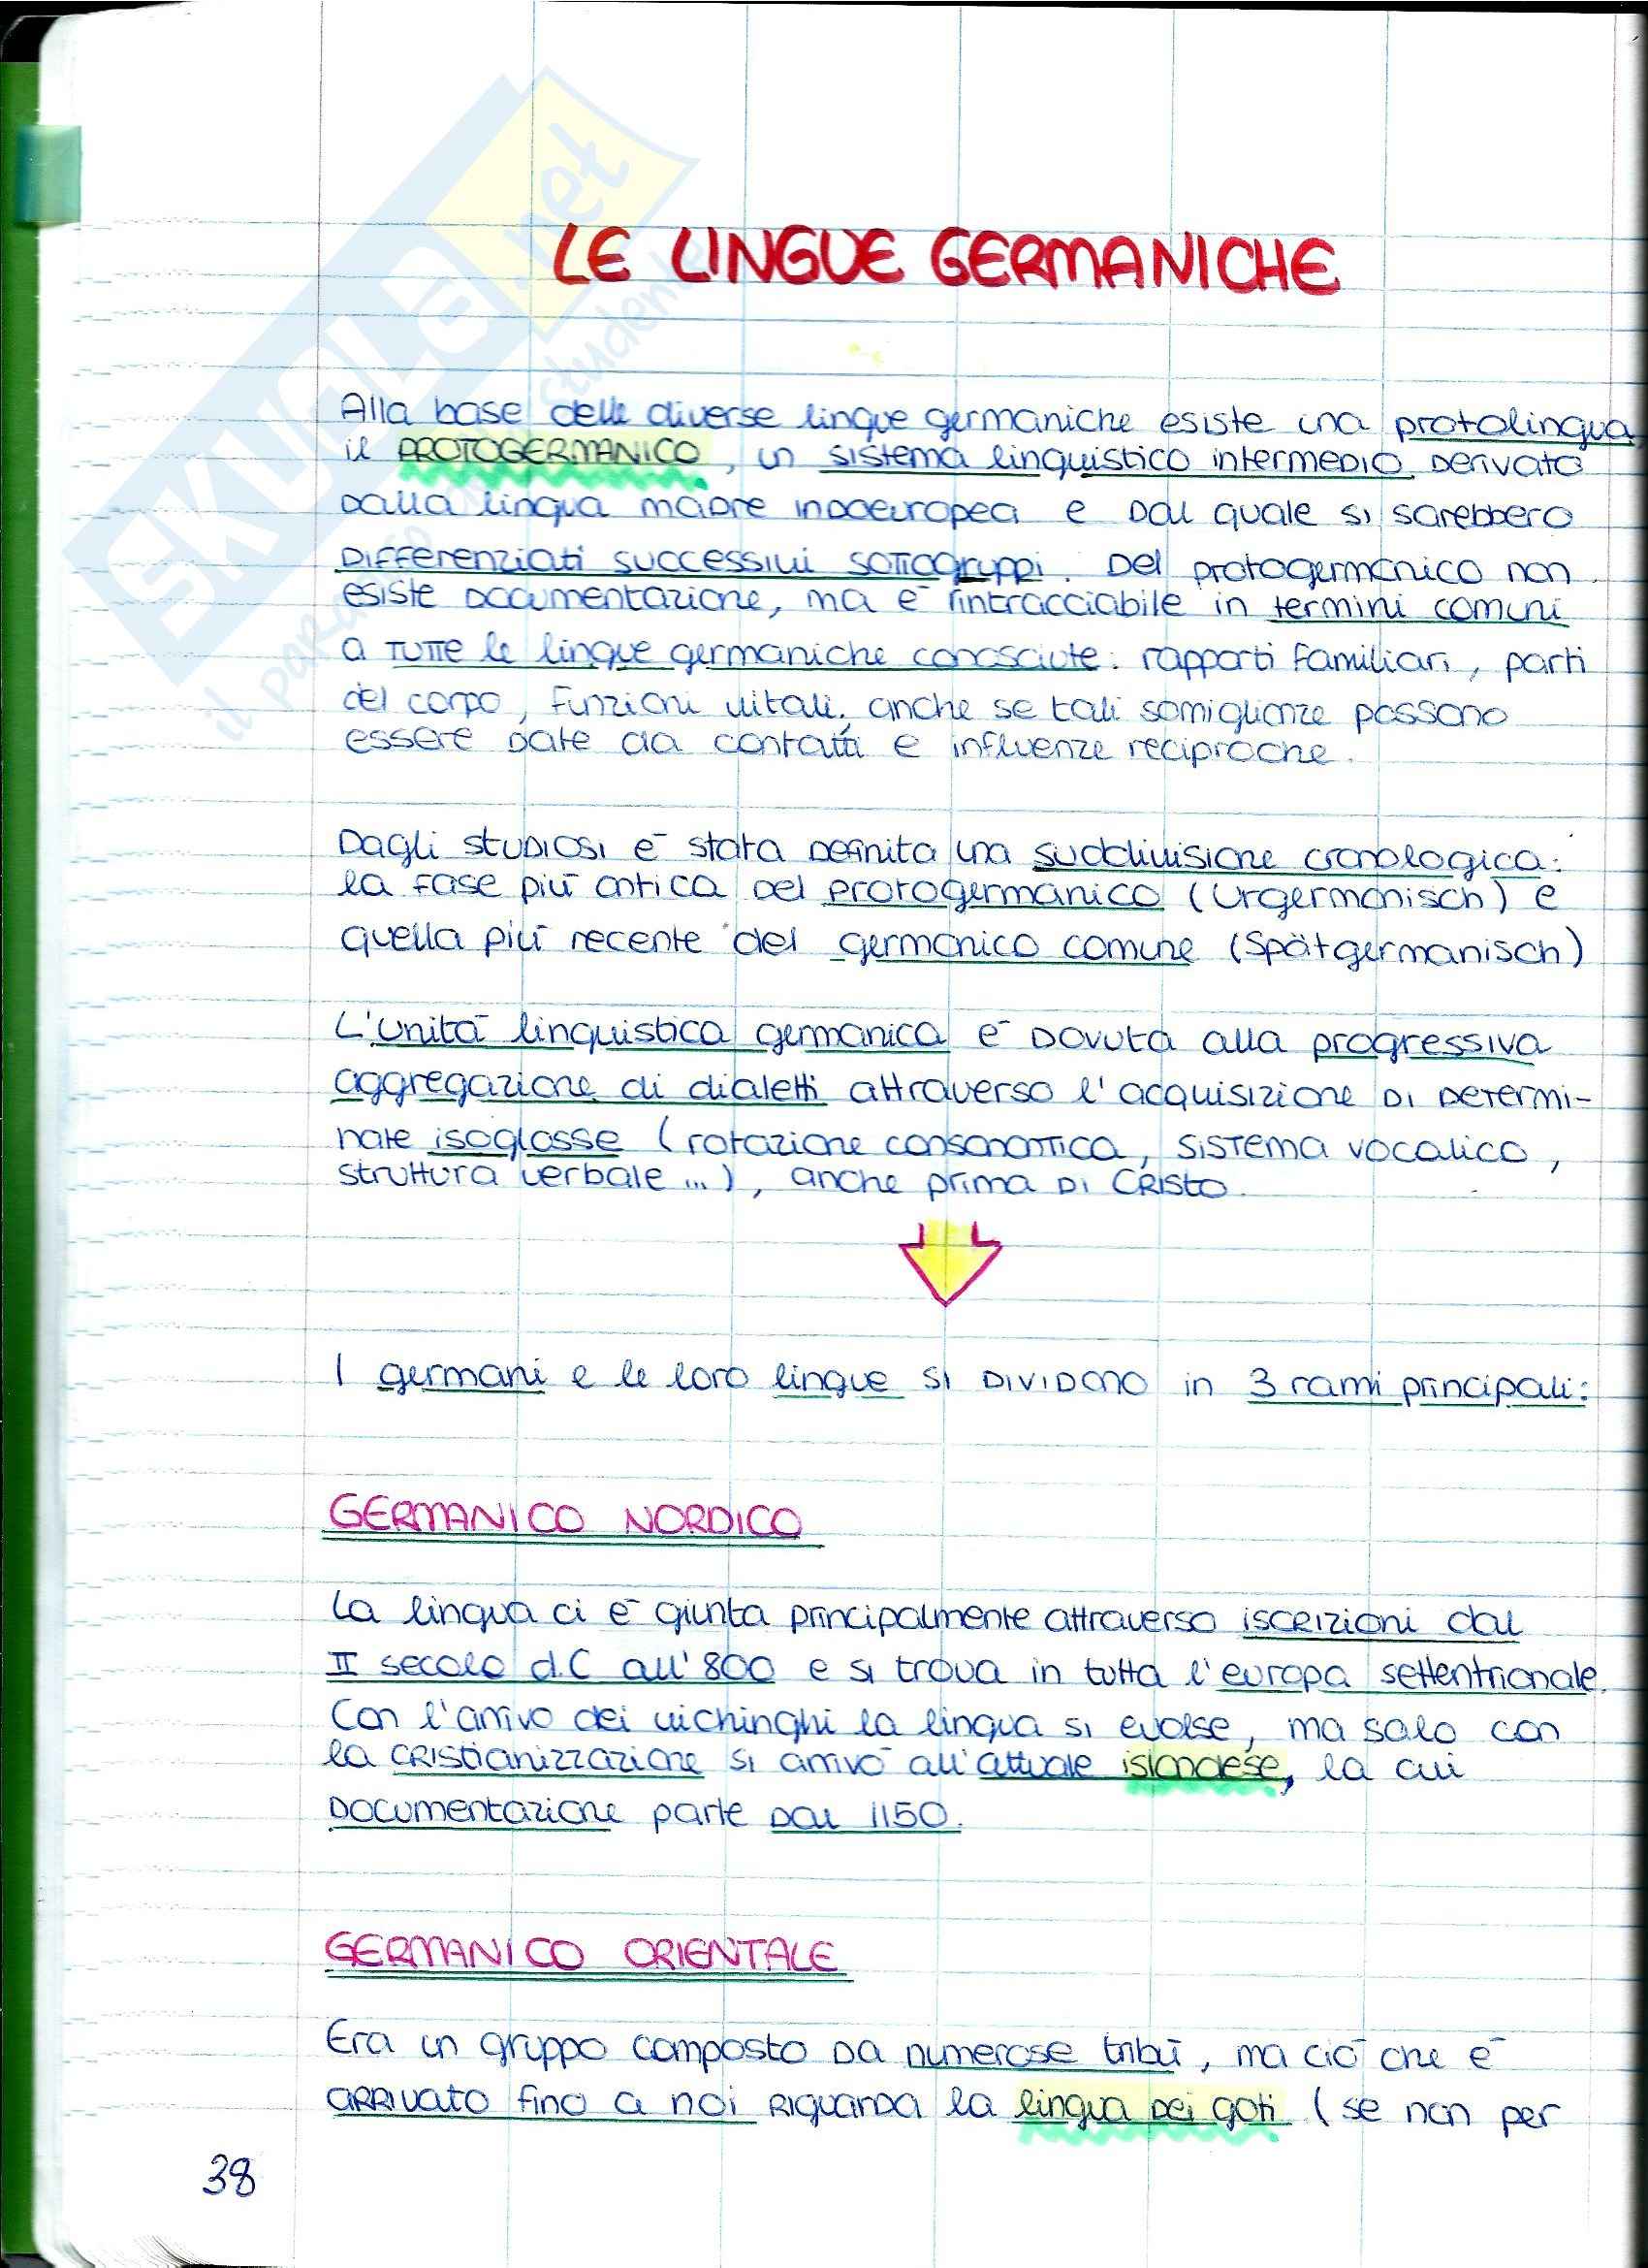 SKUOLA.net
il paradiso dello studente
LE LINGUE GERMANICHE
Alla base delle diverse lingue germaniche esiste una protolingua
il PROTOGERMANICO, un sistema linguistico intermedio derivato
dalla lingua madre indoeuropea e dal quale si sarebbero
differenziati successivi sottogruppi. Del protogermanico non
esiste documentazione, ma è rintracciabile in termini comuni
a tutte le lingue germaniche conosciute: rapporti familiari, parti
del corpo, funzioni vitali, anche se tali somiglianze possono
essere date da contatti e influenze reciproche.
Dagli studiosi è stata definita una suddivisione cronologica:
la fase più antica del protogermanico (Urgermanisch) e
quella più recente del germanico comune (Spätgermanisch)
L'unità linguistica germanica è dovuta alla progressiva
aggregazione di dialetti attraverso l'acquisizione di determi-
nate isoglosse (rotazione consonantica, sistema vocalico,
struttura verbale...), anche prima di Cristo.
I germani e le loro lingue si dividono in 3 rami principali:
GERMANICO NORDICO
La lingua ci è giunta principalmente attraverso iscrizioni dal
II secolo d.C all'800 e si trova in tutta l'europa settentrionale.
Con l'arrivo dei vichinghi la lingua si evolse, ma solo con
la cristianizzazione si arrivò all'attuale islandese, la cui
documentazione parte dal 1150.
GERMANICO ORIENTALE
Era un gruppo composto da numerose tribù, ma ciò che è
arrivato fino a noi riguarda la lingua dei goti (se non per
38